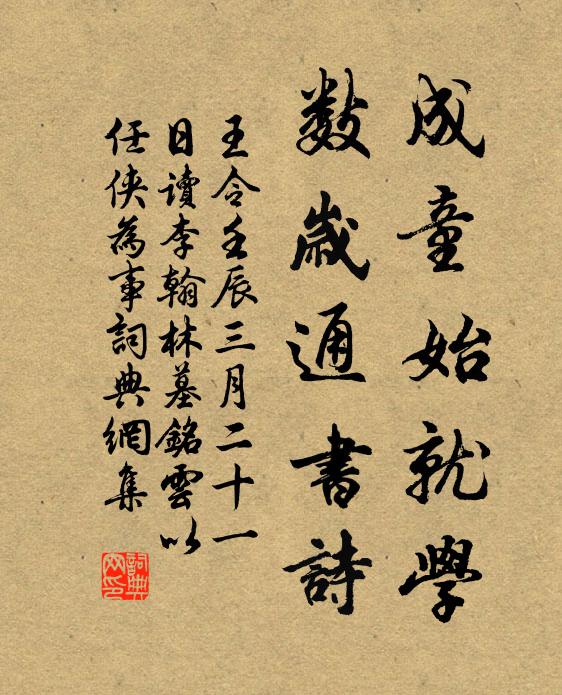 成童始就學
數歲通書詩
王令壬辰三月二十一
日讀李翰林墓銘雲以
任俠為事詞典網集
詞典网印